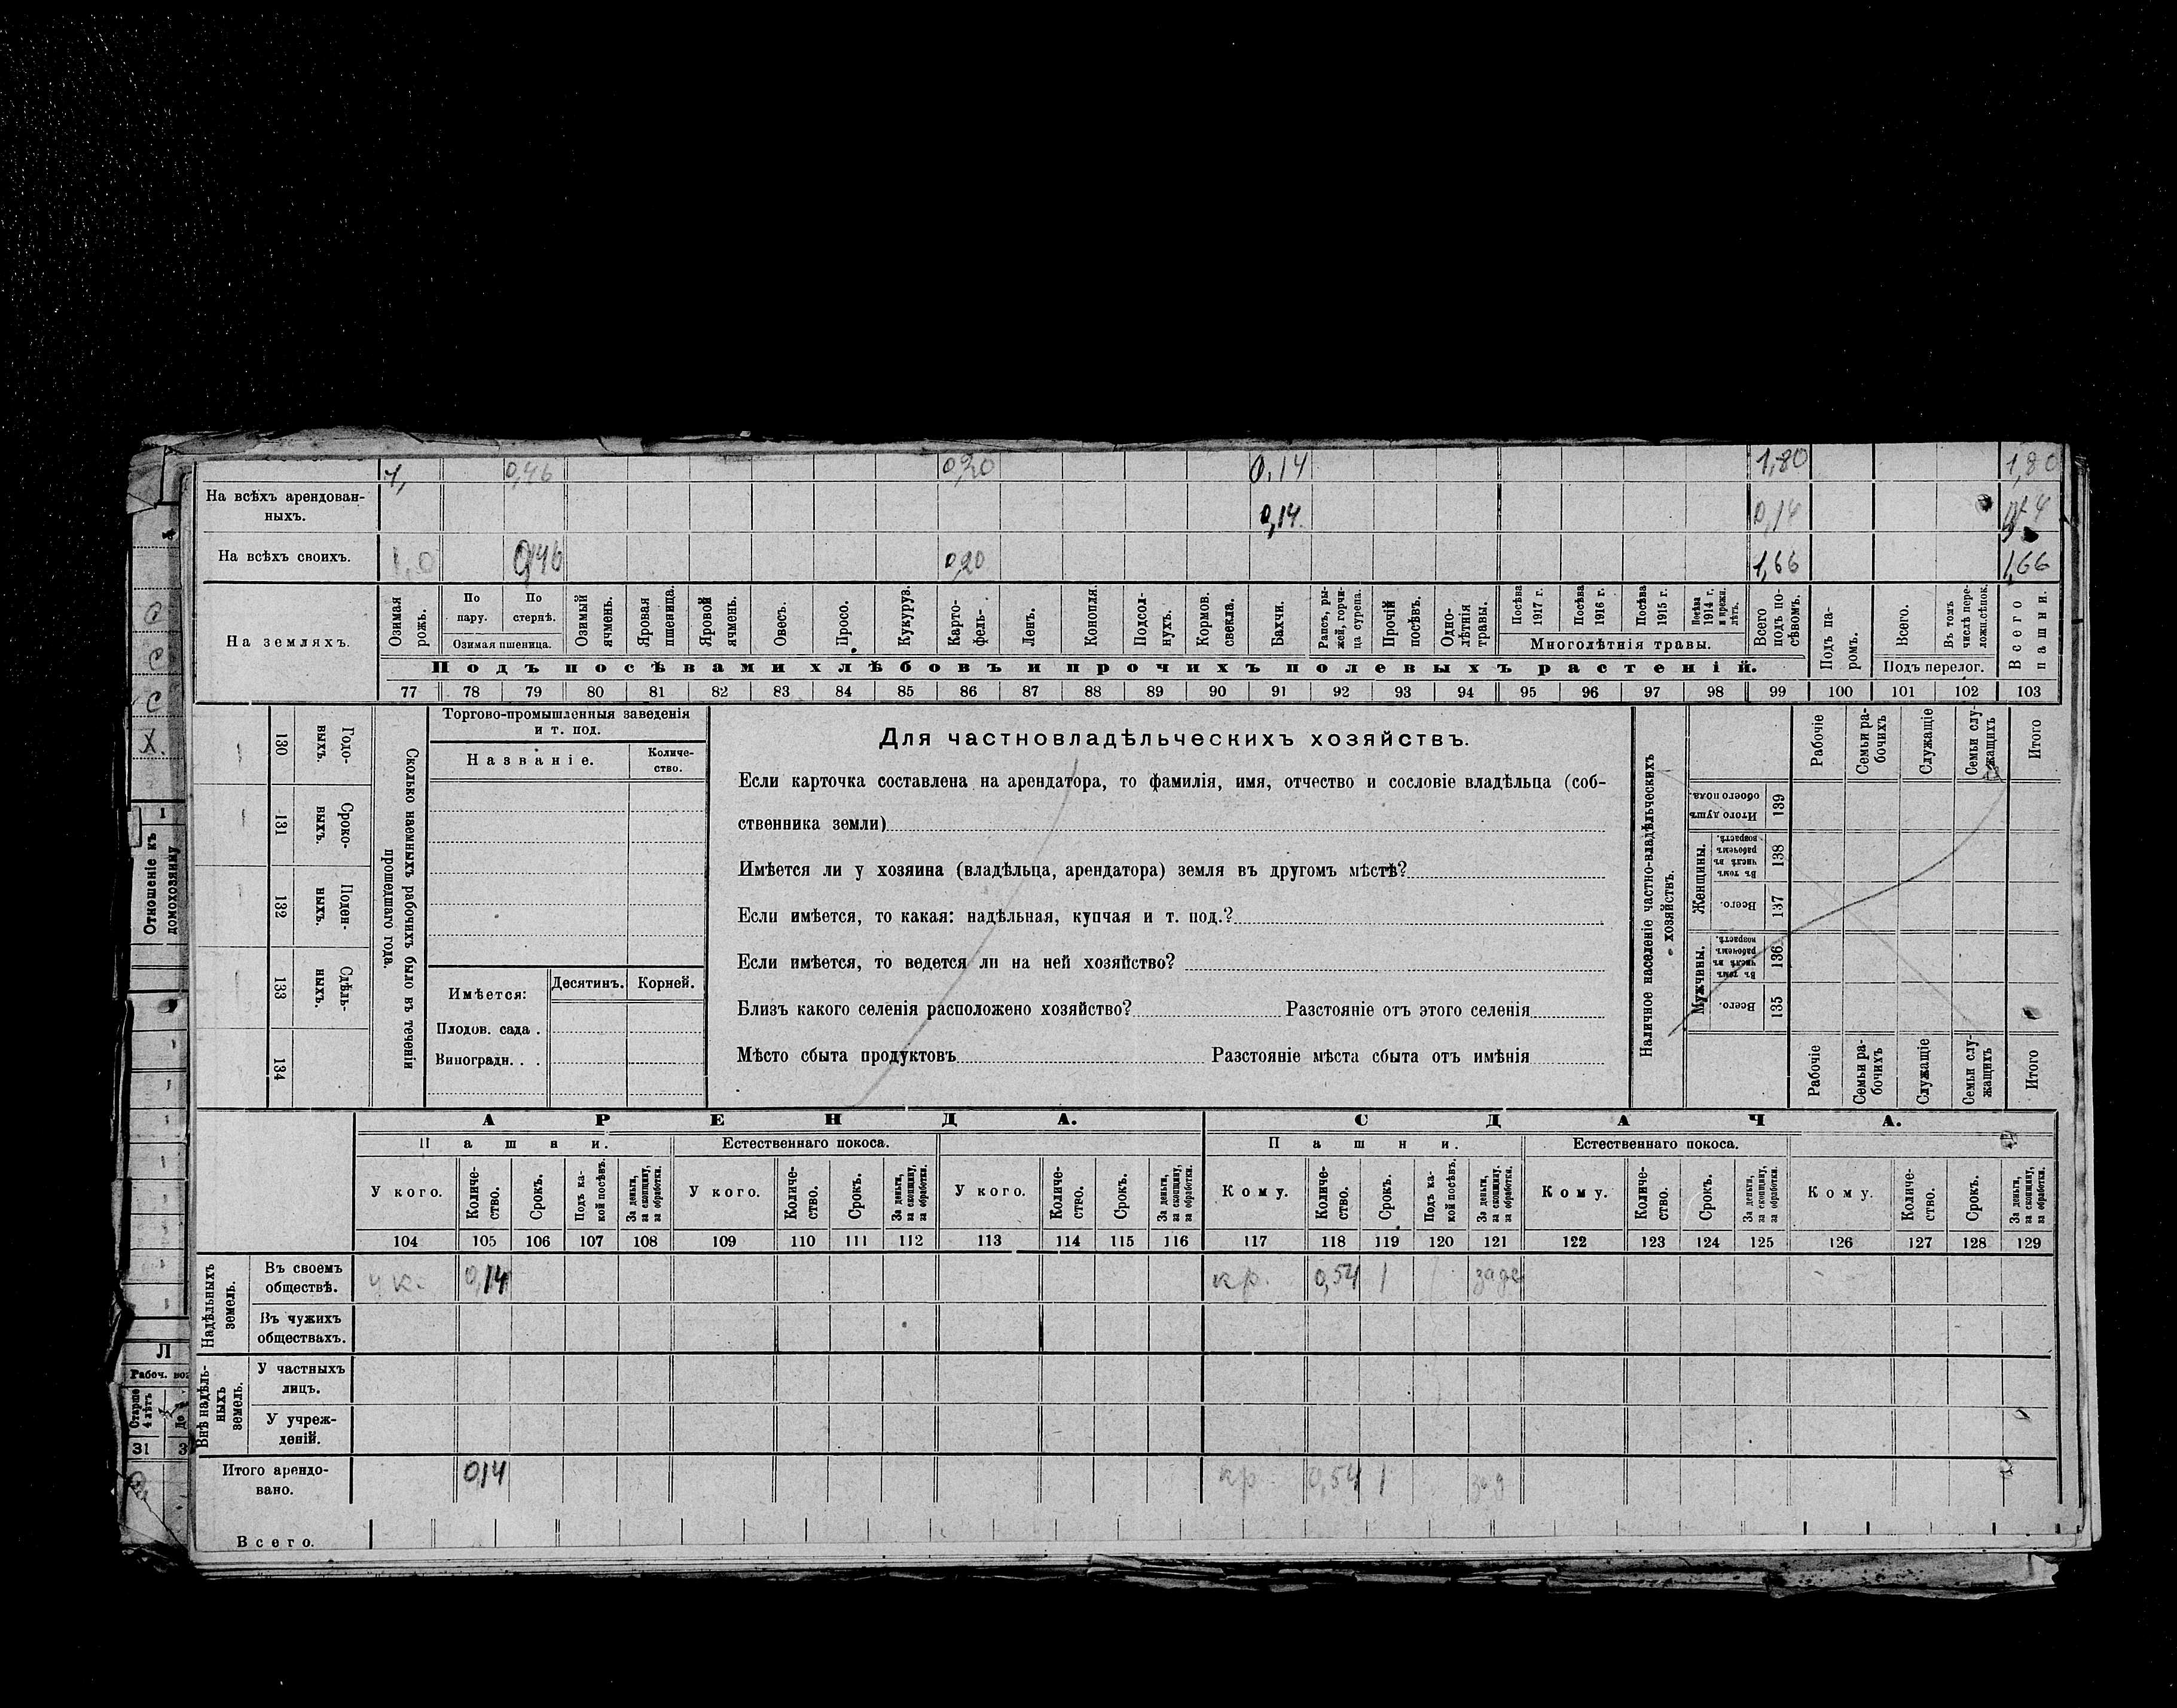 1, 0,46 0,20 0,14 1,80 1,80
На всѣхъ арендован-
ныхъ. 0,14 0,14
На всѣхъ своихъ. 1,0 0,46 0,20 1,66 1,66
На земляхъ.
Озимая рожь.
По пару.
По стернѣ.
Озимая пшеница.
Озимый ячмень.
Яровая пшеница.
Яровой ячмень.
Овесъ.
Просо.
Кукуруза.
Карто-
фель-
Ленъ.
Конопля.
Подсол-
нухъ.
Кормов. свекла.
Бахчи.
Рапсъ, ры-
жей, горчи-
ца сурепа.
Прочій посѣвъ.
Одно-
лѣтнія травы.
Посѣва 1917 г.
Посѣва 1916 г.
Посѣва 1915 г.
Посѣва 1914 г. и прежн. лѣтъ.
Многолѣтнія травы.
Всего подъ по-
сѣвомъ.
Подъ посѣвами хлѣбовъ и прочихъ полевыхъ растеній.
Подъ па-
ромъ.
Всего.
Въ томъ числѣ пере-
ложн. сѣнок.
Подъ перелог.
Всего пашни.
77 78 79 80 81 82 83 84 85 86 87 88 89 90 91 92 93 94 95 96 97 98 99 100 101 102 103
130 Годо-
выхъ.
131 Сроко-
выхъ.
132 Поден-
ныхъ.
133 Сдѣль-
ныхъ.
134
Сколько наемныхъ рабочихъ было въ теченіи
прошедшаго года.
Торгово-промышленныя заведенія
и т. под.
Названіе.
Количе-
ство.
Имѣется: Десятинъ. Корней.
Плодов. сада .
Виноградн. . .
Для частновладѣльческихъ хозяйствъ.
Если карточка составлена на арендатора, то фамилія, имя, отчество и сословіе владѣльца (соб-
ственника земли)
Имѣется ли у хозяина (владѣльца, арендатора) земля въ другомъ мѣстѣ?
Если имѣется, то какая: надѣльная, купчая и т. под.?
Если имѣется, то ведется ли на ней хозяйство?
Близъ какого селенія расположено хозяйство? Разстояніе отъ этого селенія
Мѣсто сбыта продуктовъ Разстояніе мѣста сбыта отъ имѣнія
Наличное населеніе частно-владѣльческихъ
хозяйствъ.
Рабочіе
Семьи ра-
бочихъ
Служащіе
Семьи слу-
жащихъ
Итого
Итого душъ обоего пола. 139
Женщины.
Въ томъ числѣ въ рабочемъ возрастѣ. 138
Всего. 137
Мужчины.
Въ томъ числѣ въ рабочемъ возрастѣ. 136
Всего. 135
Рабочіе
Семьи ра-
бочихъ
Служащіе
Семьи слу-
жащихъ
Итого
АРЕНДА. СДАЧА.
Пашни. Естественнаго покоса. Пашни. Естественнаго покоса.
У кого.
Количе-
ство.
Срокъ.
Подъ ка-
кой посѣвъ.
За деньги, за скопщину, за обработки.
У кого.
Количе-
ство.
Срокъ.
За деньги, за скопщину, за обработки.
У кого.
Количе-
ство.
Срокъ.
За деньги, за скопщину, за обработки.
Кому.
Количе-
ство.
Срокъ.
Подъ ка-
кой посѣвъ.
За деньги, за скопщину. за обработки.
Кому.
Количе-
ство.
Срокъ.
За деньги, за скопщину, за обработки.
Кому.
Количе-
ство.
Срокъ.
За деньги, за скопщину, за обработки.
104 105 106 107 108 109 110 111 112 113 114 115 116 117 118 119 120 121 122 123 124 125 126 127 128 129
Надѣльныхъ земель.
Въ своемъ
обществѣ. 0,14 кр. 0,54 1
Въ чужихъ
обществахъ.
Внѣ надѣль-
ныхъ земель.
У частныхъ
лицъ.
У учреж-
деній.
Итого арендо-
вано. 0,14 кр 0,54 1
Всего.
1
Отношеніе къ
домохозяину
Л
Рабоч. воз
Старше
31